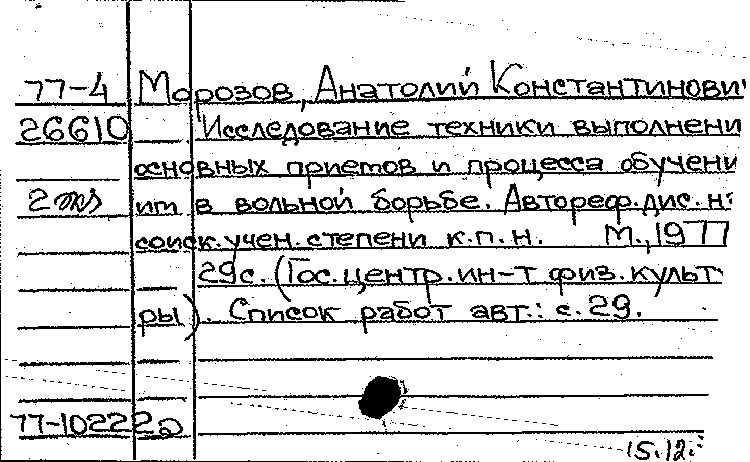 77-4 Морозов, Анатолий Константинович
26610 Исследование техники выполнени
основных приемов и процесса обучени
2 экз им в вольной борьбе. Автореф. дис. н
соиск. учен. степени к.п.н. М., 1977
29с. (Гос. центр. ин-т физ. культ
ры). Список работ авт.: с. 29.
77-10222а
15.12.